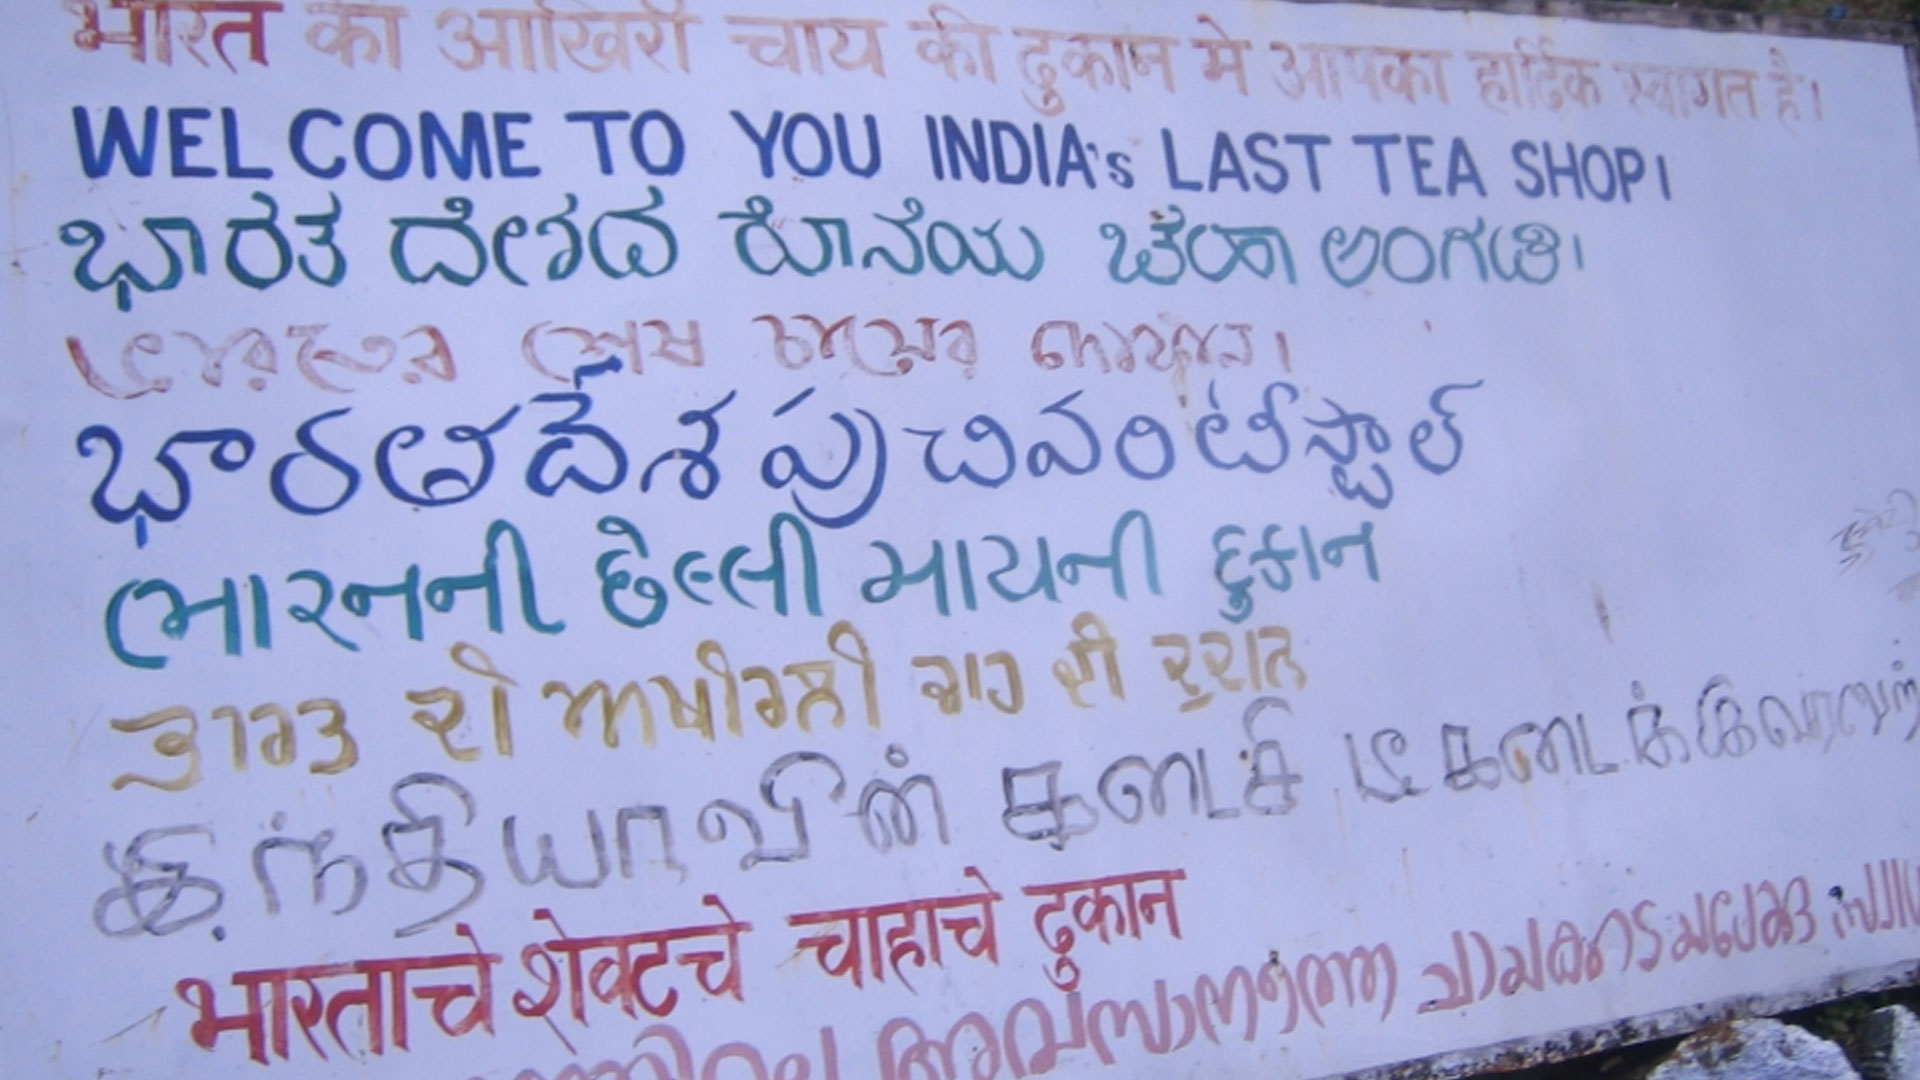 भारत का आखिरी चाय की दुकान मे आपका हार्दिक स्वागत है।
WELCOME TO YOU INDIA's LAST TEA SHOP।
ಭಾರತ ದೇಶದ ಕೊನೆಯ ಚಹಾ ಅಂಗಡಿ।
ভারতের শেষ চায়ের দোকান।
భారతదేశపు చివరి టీస్టాల్
ભારતની છેલ્લી ચાયની દુકાન
ਭਾਰਤ ਦੀ ਦੀ
இந்தியாவின் கடைசி டீ கடைக்கு
भारताचे शेवटचे चाहाचे दुकान